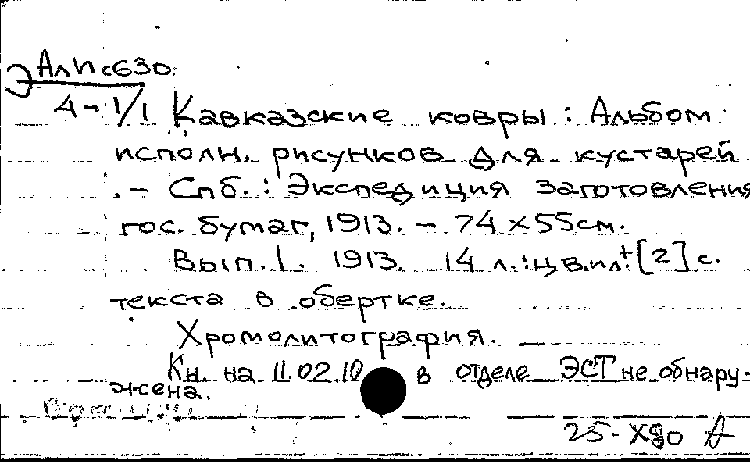 Э АлПс630
4-1/1 Кавказские ковры: Альбом
исполн. рисунков для кустарей
.- Спб.: Экспедиция заготовления
гос. бумаг, 1913. - 74х55см.
Вып. 1. 1913. 14 л.: цв.ил.+[2] с.
текста в обертке.
Хромолитография.
Кн. на 11.02.10 в отделе ЭСТ не обнару-
жена.
25-Х80